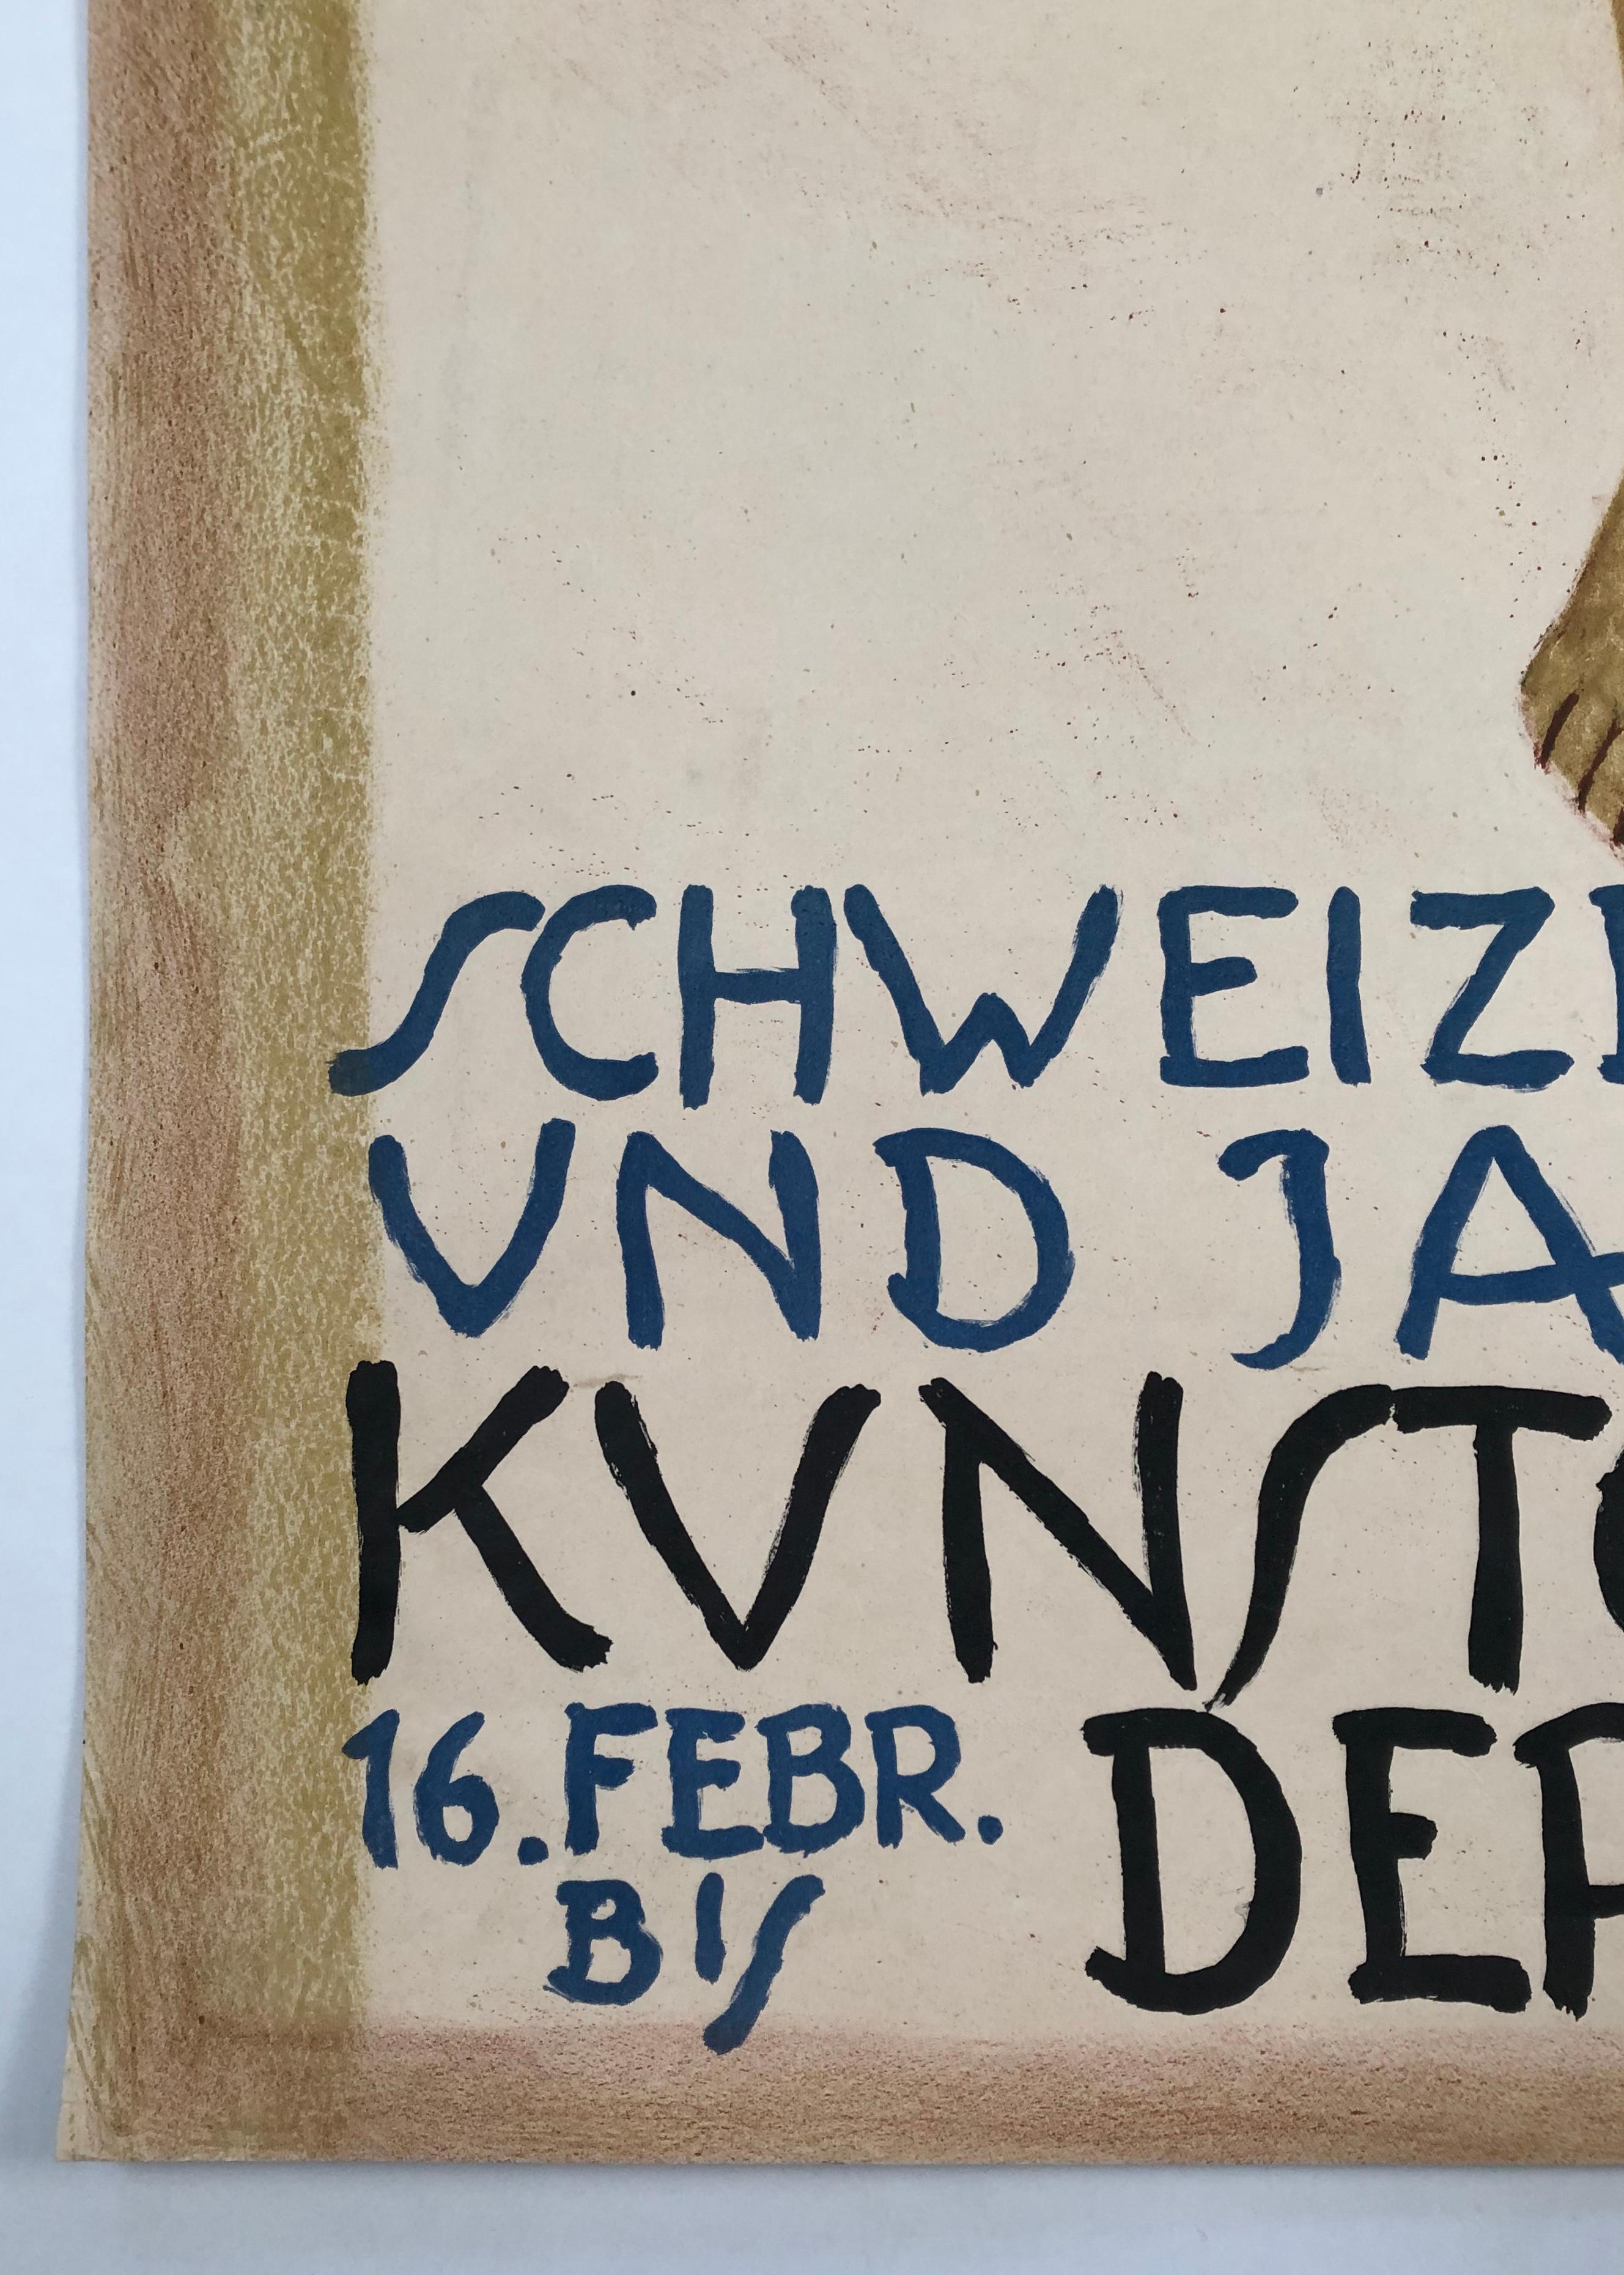 SCHWEIZE
VND JA
KVNST
16. FEBR.
BIS
DEP